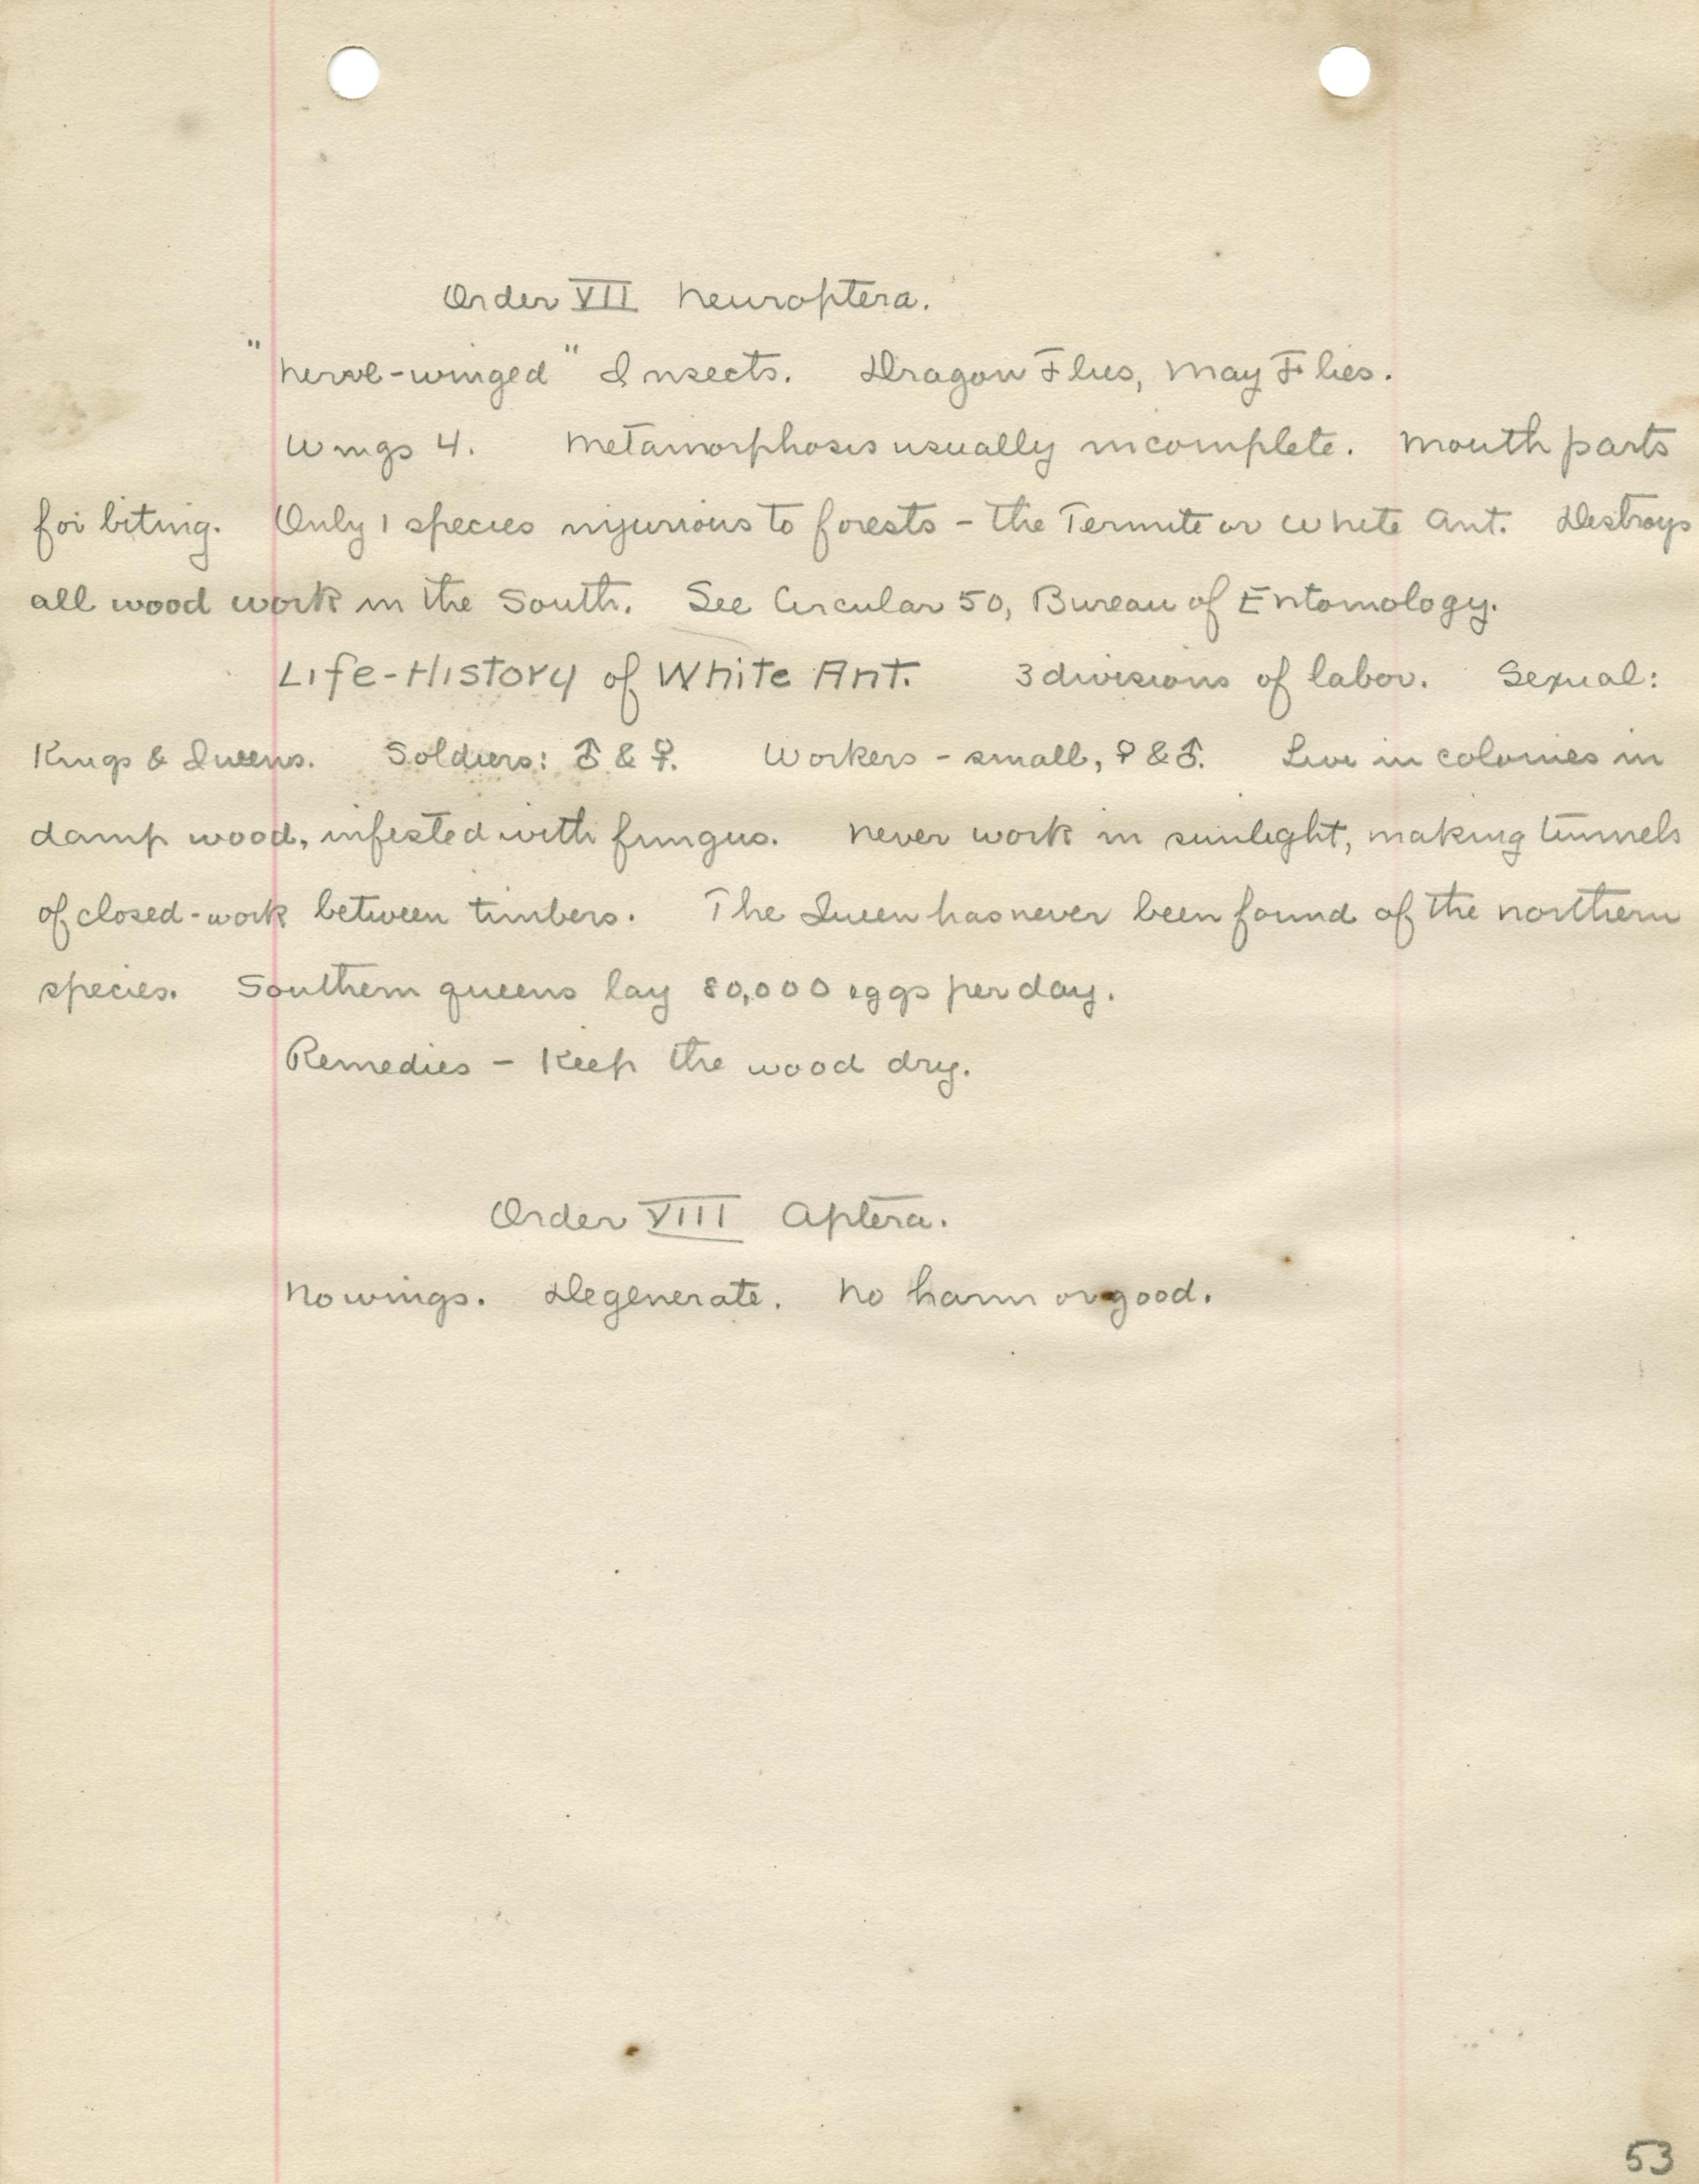 Order VII Neuroptera.
"Nerve-winged" Insects. Dragon Flies, May Flies.
Wings 4. Metamorphosis usually incomplete. Mouth parts
for biting. Only 1 species injurious to forests - the Termite or White Ant. Destroys
all wood work in the South. See Circular 50, Bureau of Entomology.
Life-History of White Ant. 3 divisions of labor. Sexual:
Kings & Queens. Soldiers: ♂ & ♀. Workers - small, ♀ & ♂. Live in colonies in
damp wood, infested with fungus. Never work in sunlight, making tunnels
of closed-work between timbers. The Queen has never been found of the northern
species. Southern queens lay 80,000 eggs per day.
Remedies - Keep the wood dry.
Order VIII Aptera.
No wings. Degenerate. No harm or good.
53